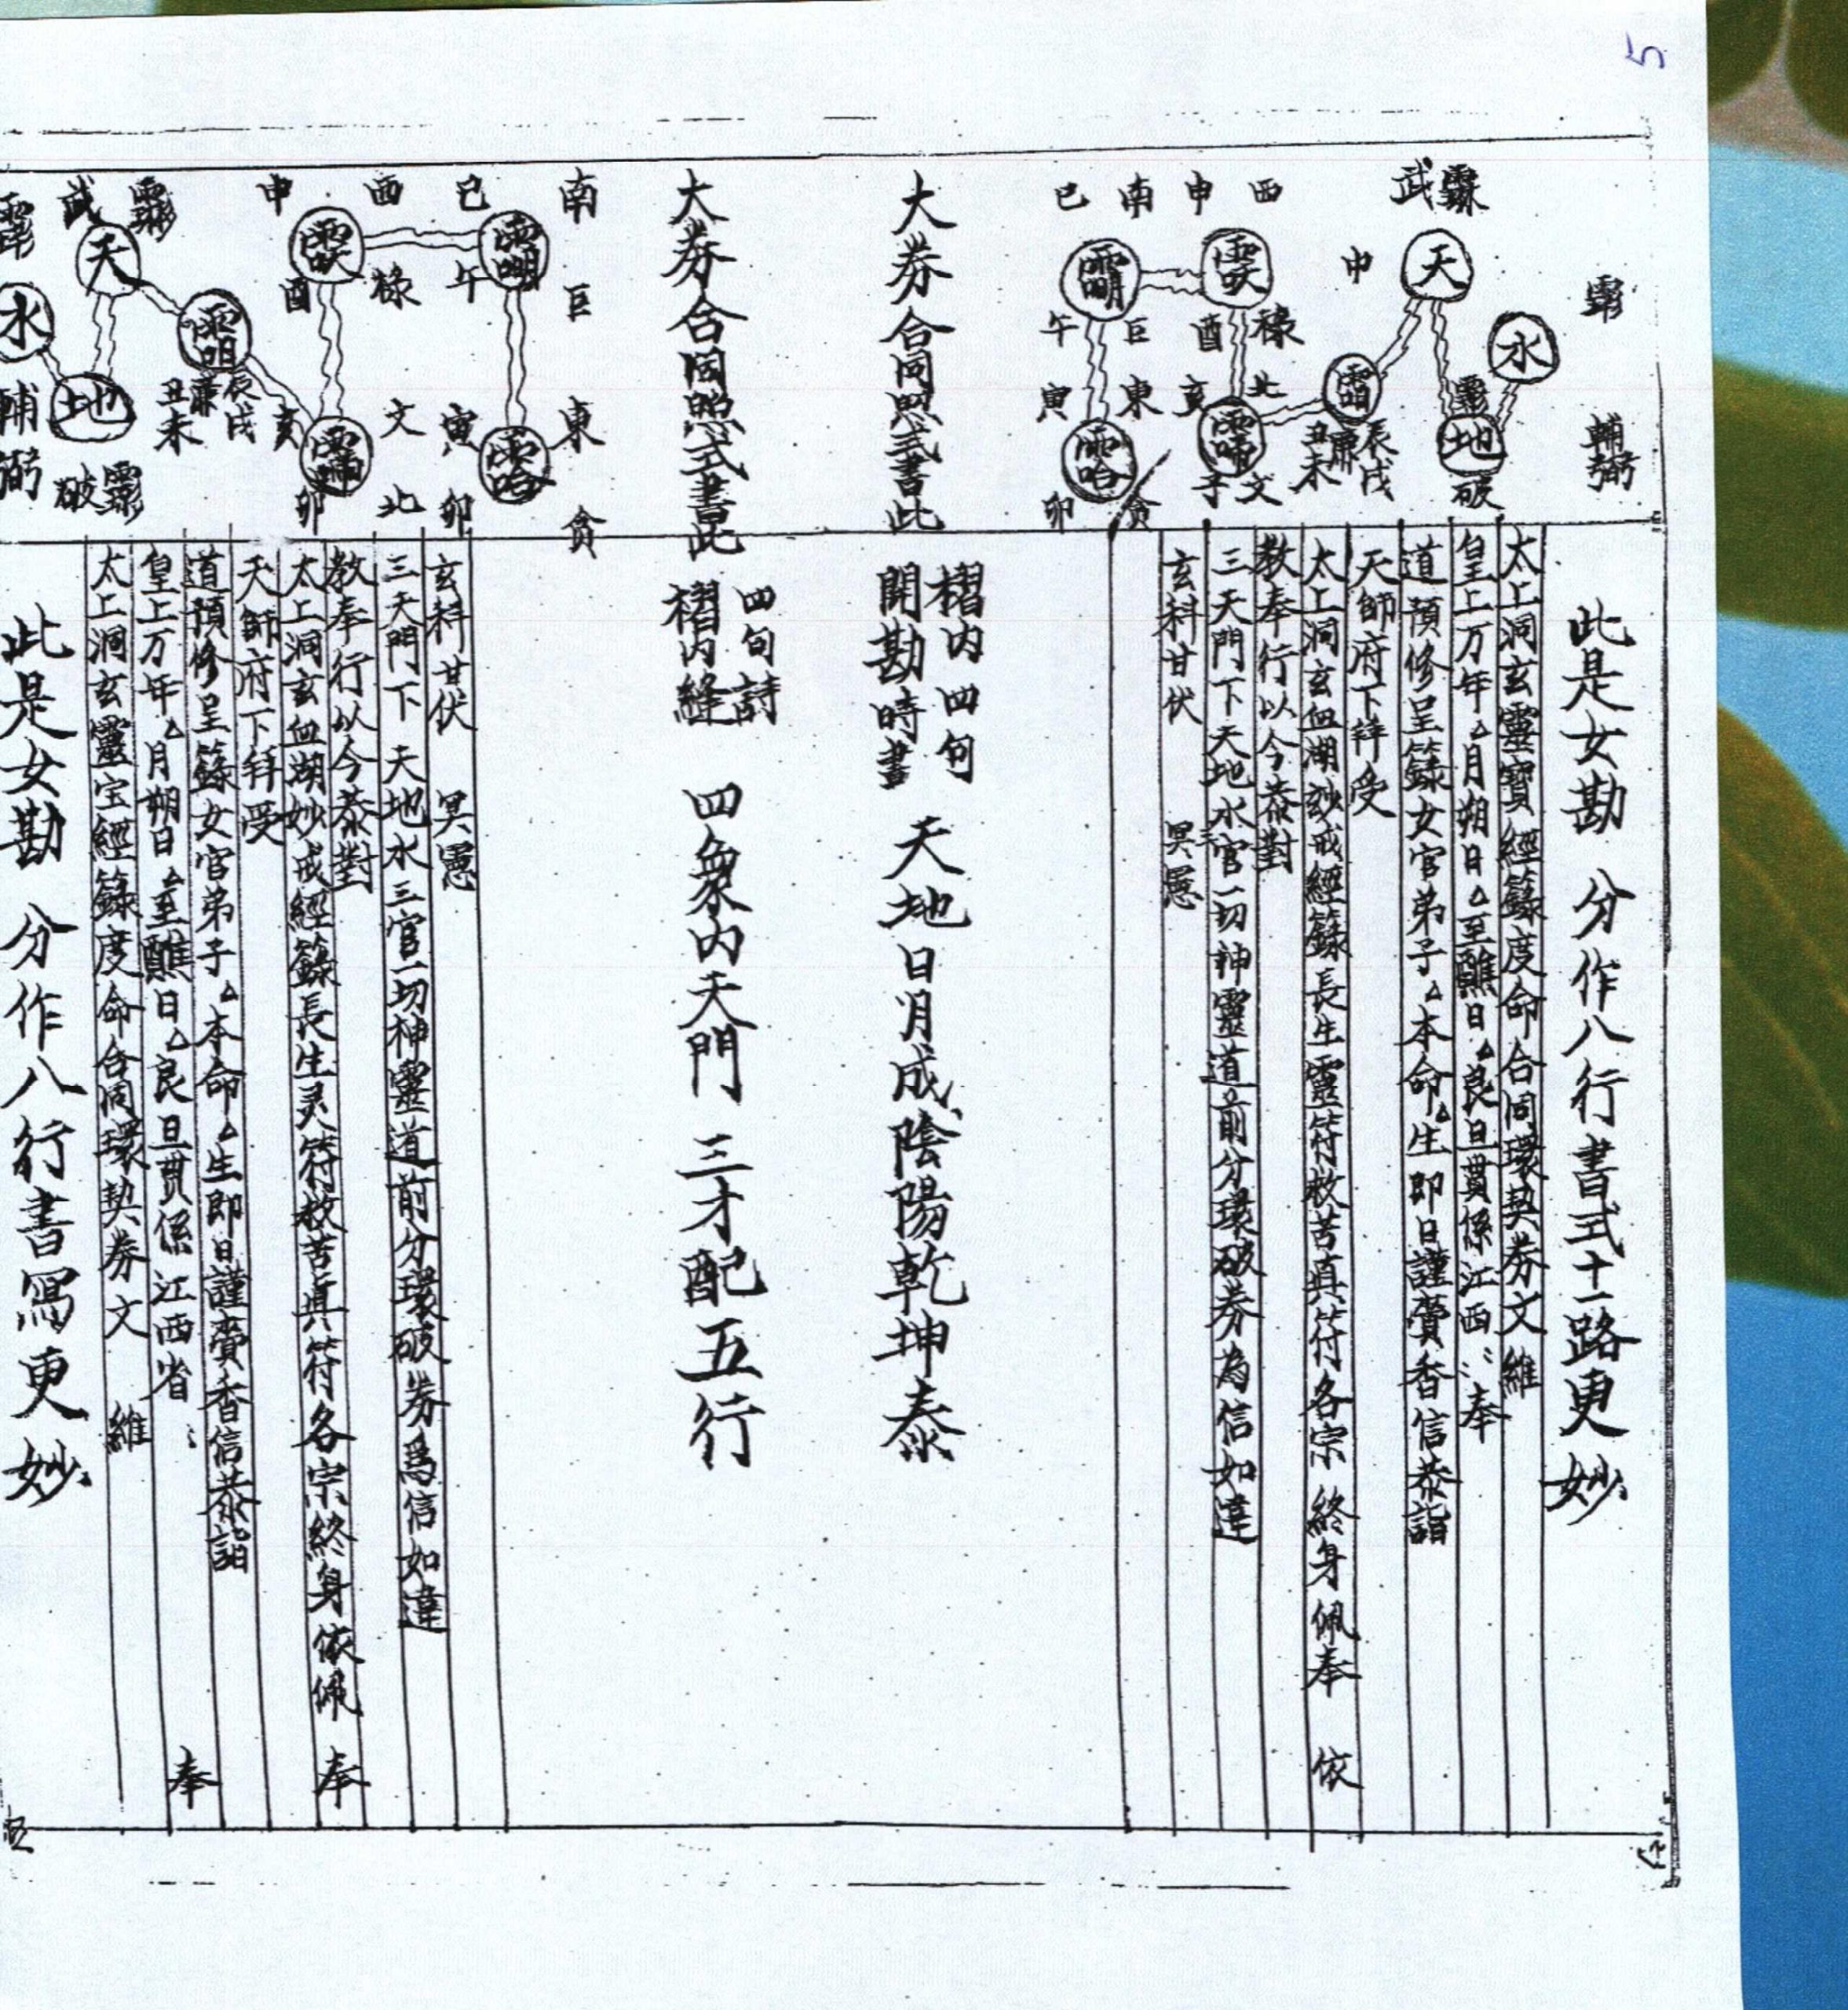 5
此是女勘 分作八行書式十一路更妙
太上洞玄靈寶經籙度命合同環契券文 維
皇上万年△月朔日△至醮日△良旦貫係江西：奉
道預修呈籙女官弟子△本命△生即日謹賫香信恭詣
天師府下拜受
太上洞玄血湖玅戒經籙長生靈符救苦真符各宗 終身佩奉 依
教奉行以今恭對
三天門下天地水三官一切神靈道前分環破券為信如違
玄科甘伏 冥憲
輔弼
水
地
破
武
天
申
辰戌
丑未
廉
西
申
禄
酉
北
亥
子文
南
巳
巨
午
東
寅
卯
貪
大券合同照式書此
褶内四句
開勘時書
天地日月成陰陽乾坤泰
大券合同照式書此
四句詩
褶内縫
四象内天門 三才配五行
南
巳
午
巨
東
寅
卯
貪
西
申
禄
酉
文
北
亥
卯
辰戌
丑未
廉
武
天
地
破
水
輔弼
玄科甘伏 冥憲
三天門下 天地水三官一切神靈道前分環破券爲信如違
教奉行以今恭對
太上洞玄血湖妙戒經籙長生灵符救苦真符各宗終身依佩 奉
天師府下拜受
道預修呈籙女官弟子△本命△生即日謹賫香信恭詣
皇上万年△月朔日△至醮日△良旦貫係江西省： 奉
太上洞玄靈宝經籙度命合同環契券文 維
此是女勘 分作八行書寫更妙